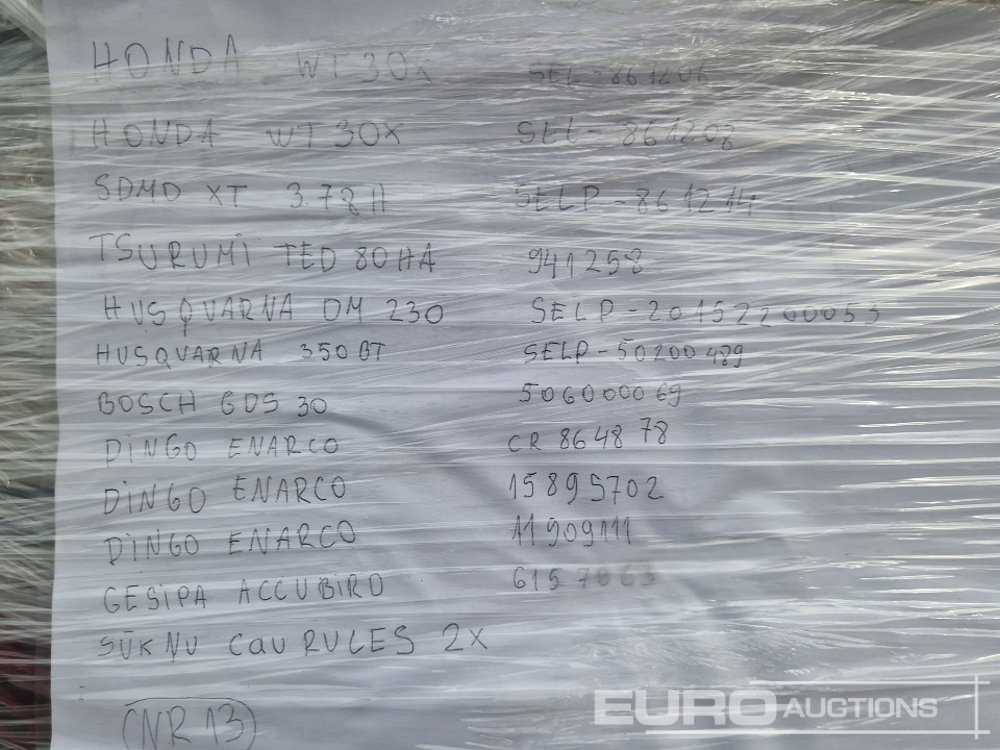 HONDA WT30X SEL-861206
HONDA WT30X SEL-861208
SDMO XT 3.78H SELP-861214
TSURUMi TED 80HA 941258
HUSQVARNA DM 230 SELP-20152200053
HUSQVARNA 350BT SELP-50200489
BOSCH GDS 30 506000069
DiNGO ENARCO CR 864878
DiNGO ENARCO 15895702
DiNGO ENARCO 11909111
GESiPA ACCUBIRD 6157063
SŪKŅU CAURULES 2X
NR 13
EURO AUCTIONS